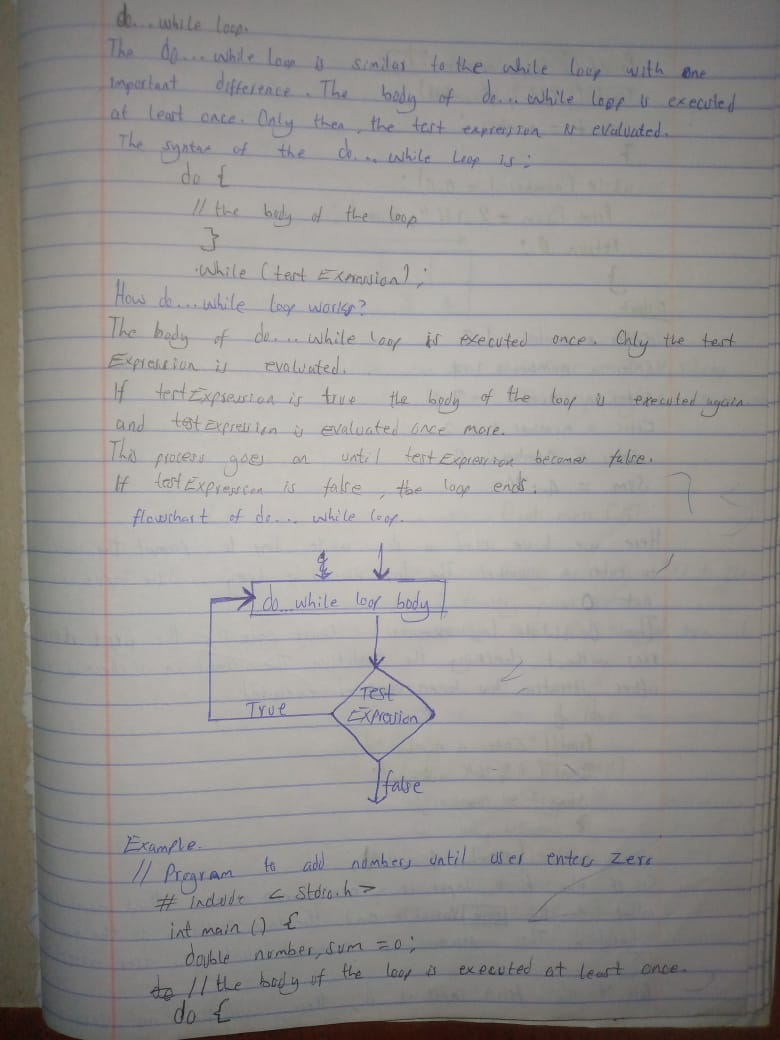 do...while loop.
The do... while loop is similar to the while loop with one
important difference. The body of do... while loop is executed
at least once. Only then, the test expression is evaluated.
The syntax of the do... while loop is:
do {
// the body of the loop
}
while (test Expression);
How do...while loop works?
The body of do... while loop is executed once. Only the test
Expression is evaluated.
If testExpression is true the body of the loop is executed again
and testExpression is evaluated once more.
This process goes on until testExpression becomes false.
If testExpression is false, the loop ends.
flowchart of do... while loop.
do...while loop body
Test
Expression
True
false
Example.
// Program to add numbers until user enters zero
# include < stdio.h >
int main () {
double number, sum = 0;
// the body of the loop is executed at least once.
do {